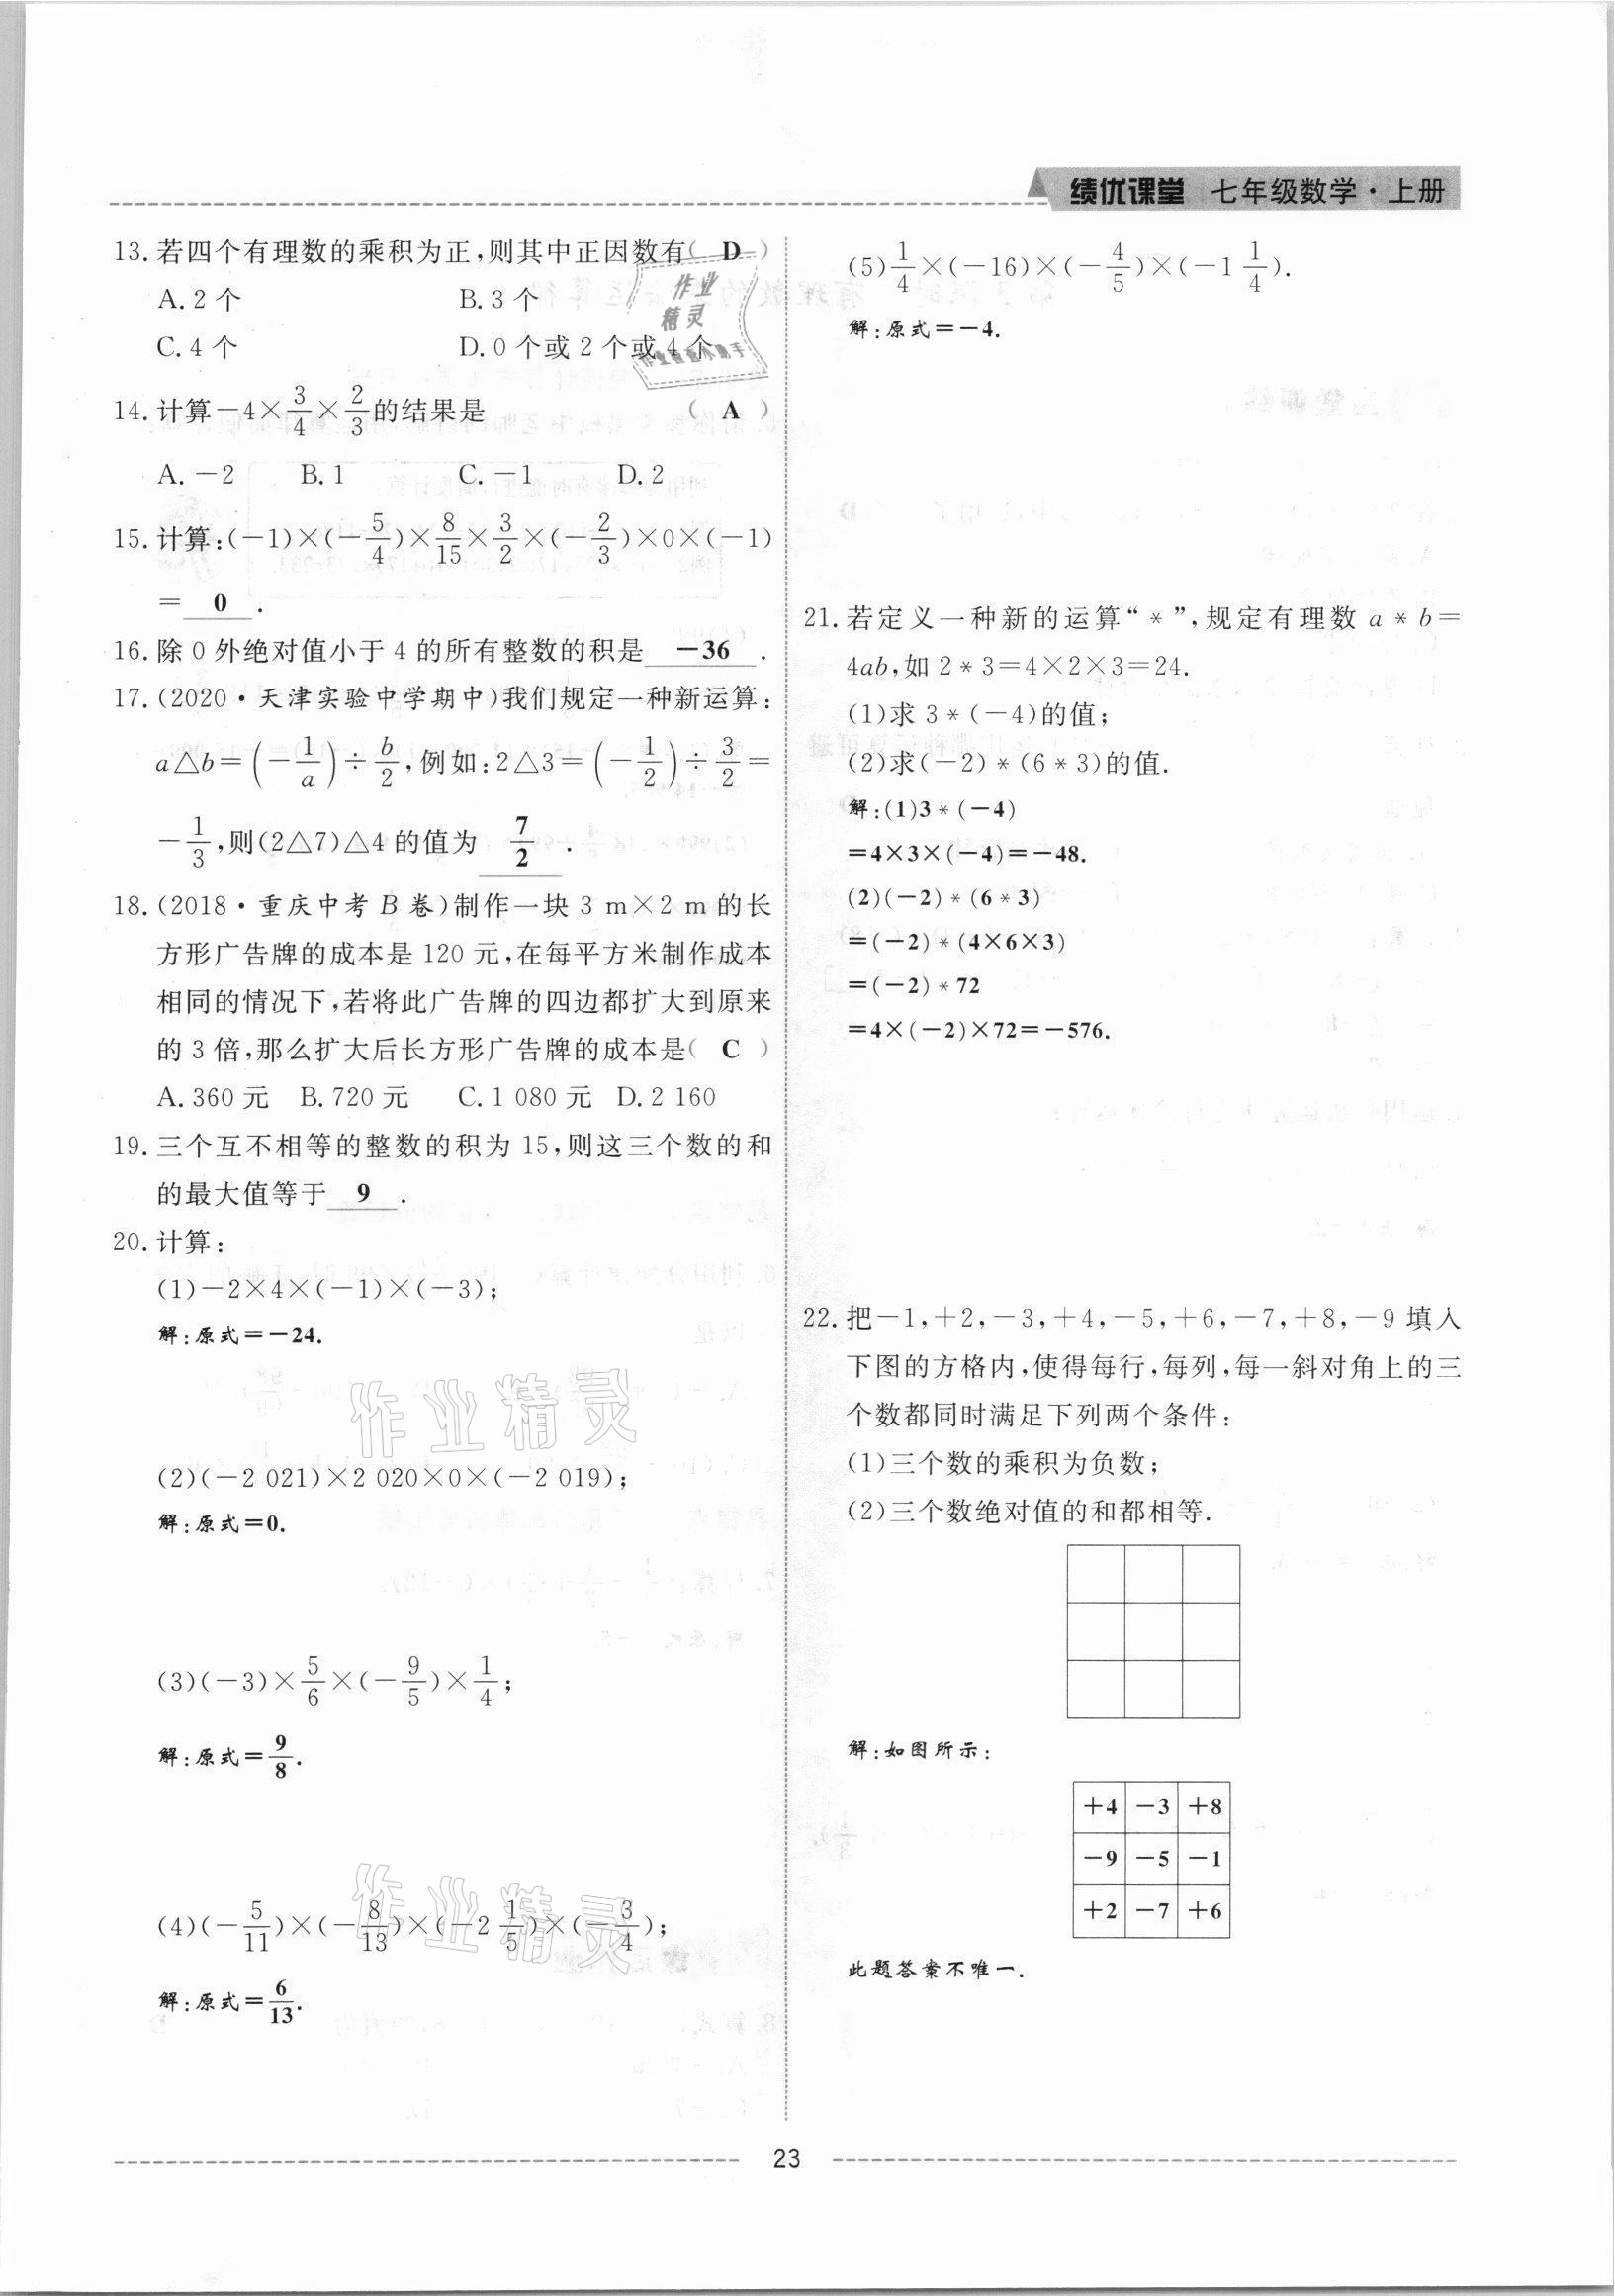 绩优课堂 七年级数学·上册
13. 若四个有理数的乘积为正,则其中正因数有( D )
A. 2 个 B. 3 个
C. 4 个 D. 0 个或 2 个或 4 个
作业
精灵
14. 计算-4×3/4×2/3的结果是 ( A )
A. -2 B. 1 C. -1 D. 2
15. 计算:(-1)×(-5/4)×8/15×3/2×(-2/3)×0×(-1)
= 0 .
16. 除 0 外绝对值小于 4 的所有整数的积是 -36 .
17. (2020·天津实验中学期中)我们规定一种新运算:
a△b=(-1/a)÷b/2,例如:2△3=(-1/2)÷3/2=
-1/3,则(2△7)△4 的值为 7/2 .
18. (2018·重庆中考 B 卷)制作一块 3 m×2 m 的长
方形广告牌的成本是 120 元,在每平方米制作成本
相同的情况下,若将此广告牌的四边都扩大到原来
的 3 倍,那么扩大后长方形广告牌的成本是( C )
A. 360 元 B. 720 元 C. 1 080 元 D. 2 160
19. 三个互不相等的整数的积为 15,则这三个数的和
的最大值等于 9 .
20. 计算:
(1)-2×4×(-1)×(-3);
解:原式=-24.
作业精灵
(2)(-2 021)×2 020×0×(-2 019);
解:原式=0.
(3)(-3)×5/6×(-9/5)×1/4;
解:原式=9/8.
(4)(-5/11)×(-8/13)×(-2 1/5)×(-3/4);
作业精灵
解:原式=6/13.
(5)1/4×(-16)×(-4/5)×(-1 1/4).
解:原式=-4.
21. 若定义一种新的运算“*”,规定有理数 a*b=
4ab,如 2*3=4×2×3=24.
(1)求 3*(-4)的值;
(2)求(-2)*(6*3)的值.
解:(1)3*(-4)
=4×3×(-4)=-48.
(2)(-2)*(6*3)
=(-2)*(4×6×3)
=(-2)*72
=4×(-2)×72=-576.
22. 把-1,+2,-3,+4,-5,+6,-7,+8,-9 填入
下图的方格内,使得每行,每列,每一斜对角上的三
个数都同时满足下列两个条件:
(1)三个数的乘积为负数;
(2)三个数绝对值的和都相等.
解:如图所示:
+4 -3 +8
-9 -5 -1
+2 -7 +6
此题答案不唯一.
23